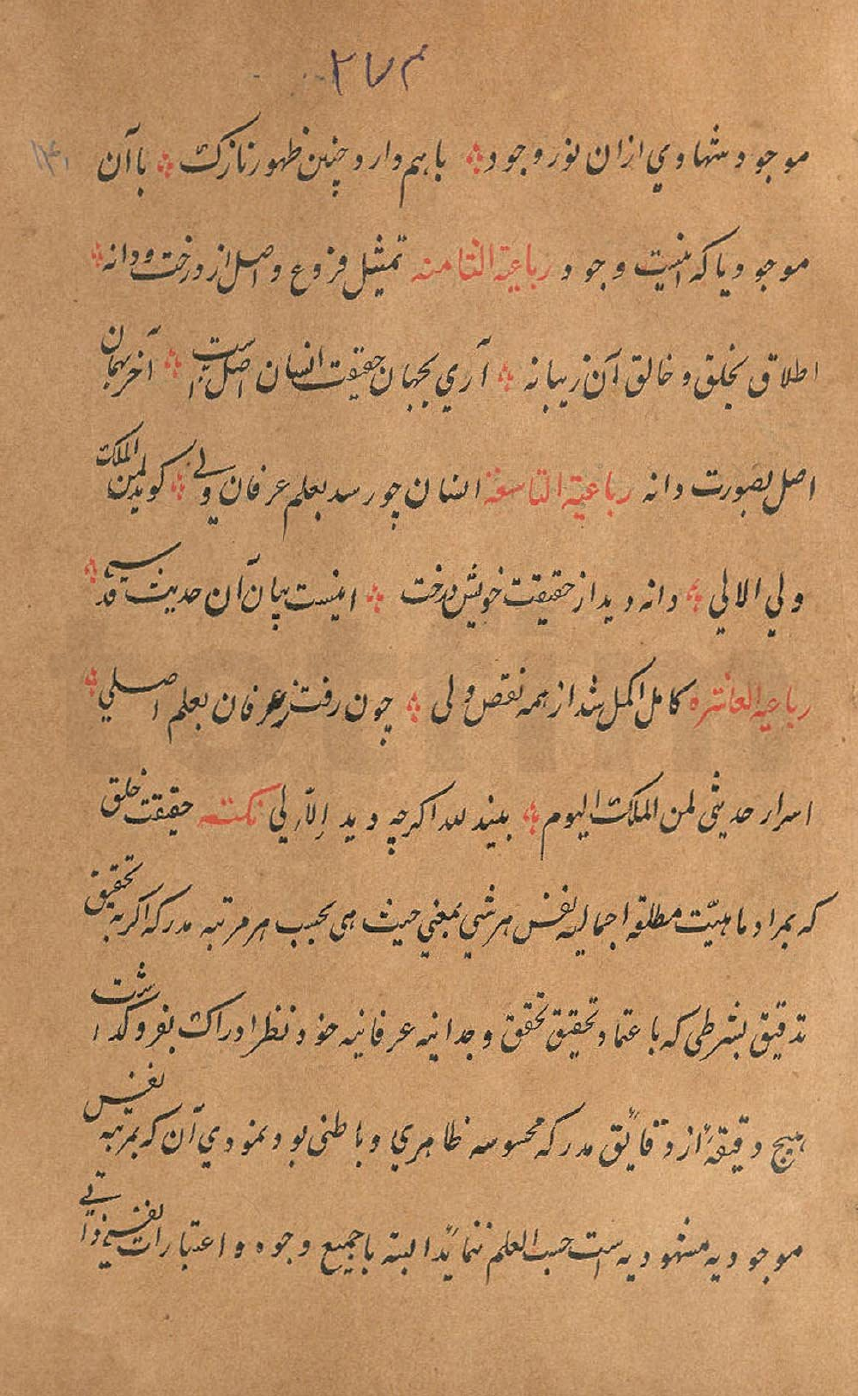 م ٢٧
١٤١
موجود شهادي ازان نور وجود ؞ باهم دارد چنین ظهور نازک ؞ باآن
موجود یا که اینیت وجود رباعیة الثامنه تمثیل فروع و اصل از درخت و دانه ؞
اطلاق بخلق و خالق آن زیبانه ؞ آري بجهان حقیقت انسان اصل است ؞ آخر بهمان
اصل بصورت دانه رباعیة التاسعة انسان چو رسد بعلم عرفان ولي ؞ کوید لمن الملک
ولي الالي ؞ دانه دید از حقیقت خویش درخت ؞ اینست بیان آن حدیث قدسي ؞
رباعیه العاشره کامل اکمل شد از همه نقص ولی ؞ چون رفت ز عرفان بعلم اصلي ؞
اسرار حدیثی لمن الملک الیوم ؞ بیند لله اکرچه دید الا لي نکته حقیقت خلق
که بمراد ماهیّت مطلقه اجمالیه نفس هر شي بمعني حیث هی بحسب هر مرتبه مدرکه اکر به تحقیق
تدقیق بشرطی که با عتماد تحقیق تحقق وجدانیه عرفانیه خود نظر ادراک بفرو کذاشت
هیچ دقیقهٔ از دقایق مدرکه محسوسه ظاهري و باطنی بود بمودي آن که بمرتبه نفس
موجودیه مشهودیه است حسب العلم ننماید البته باجمیع وجوه و اعتبارات نفسي ذاتي